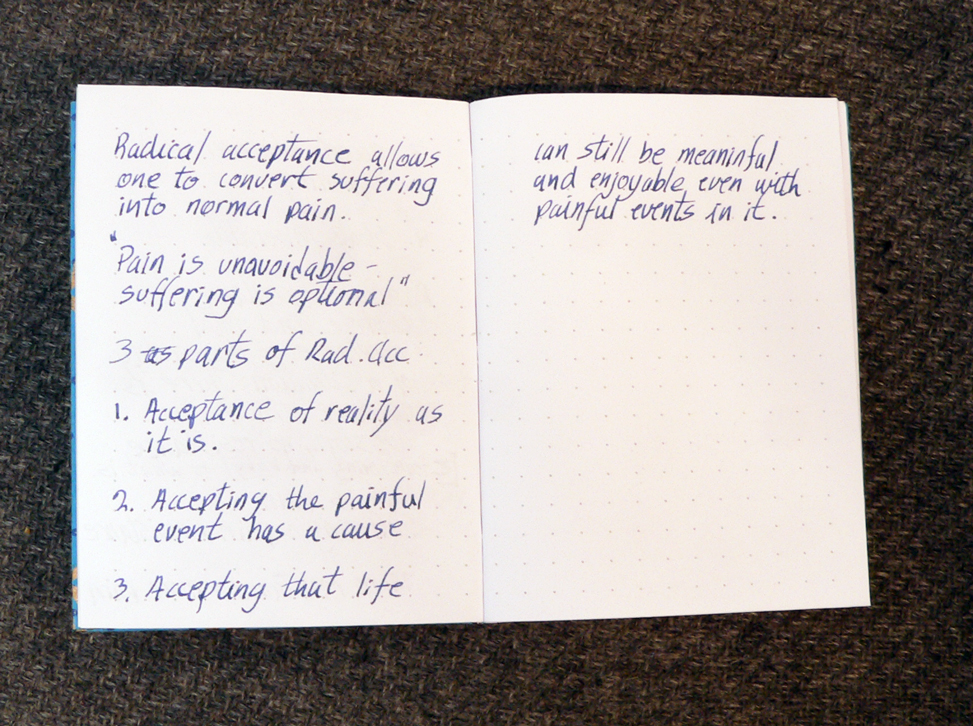 Radical acceptance allows
one to convert suffering
into normal pain.
"Pain is unavoidable -
suffering is optional"
3 parts of Rad. Acc.
1. Acceptance of reality as
it is.
2. Accepting the painful
event has a cause
3. Accepting that life
can still be meaninful
and enjoyable even with
painful events in it.